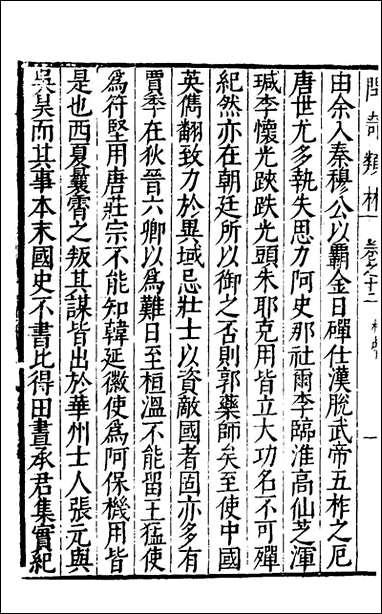 閒奇類林 卷之十二 一
由余入秦穆公以霸金日磾仕漢脫武帝五柞之厄
唐世尤多執失思力阿史那社爾李臨淮高仙芝渾
瑊李懷光跌跌光頭朱耶克用皆立大功名不可殫
紀然亦在朝廷所以御之否則郭藥師矣至使中國
英儁翻致力於異域忌壯士以資敵國者固亦多有
賈季在狄晉六卿以為難日至桓溫不能留王猛使
為符堅用唐莊宗不能知韓延徽使為阿保機用皆
是也西夏曩霄之叛其謀皆出於華州士人張元與
吳昊而其事本末國史不書比得田晝承君集實紀